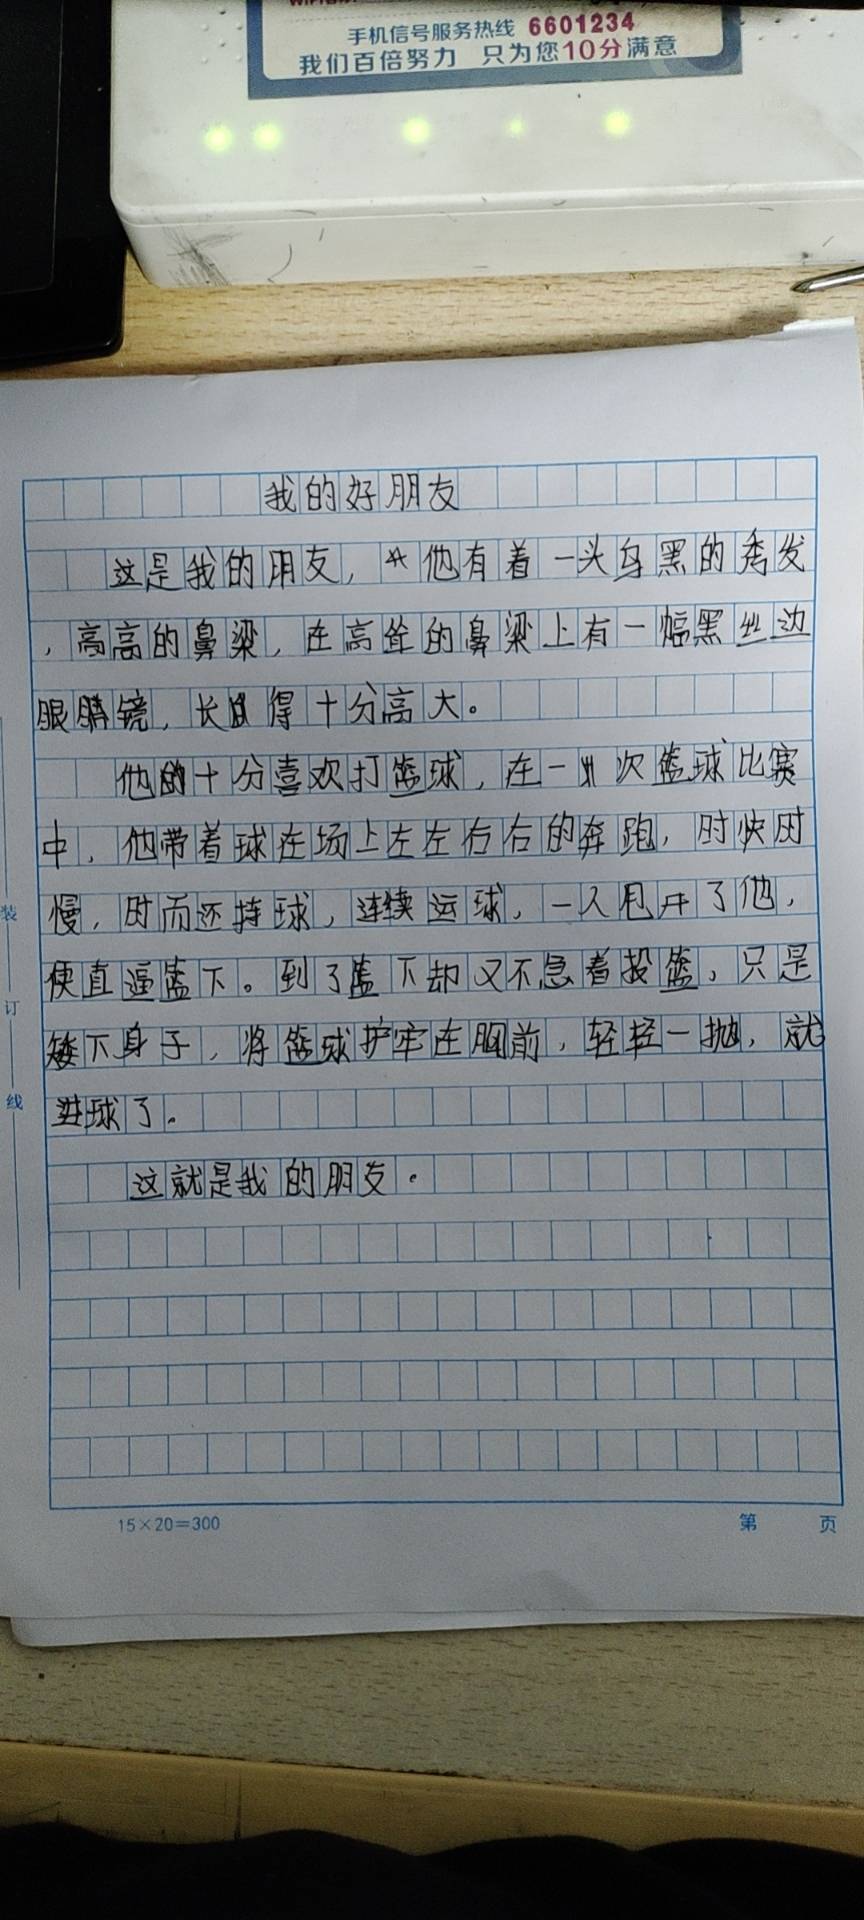 手机信号服务热线 6601234
我们百倍努力 只为您10分满意
我的好朋友
这是我的朋友，他有着一头乌黑的秀发
，高高的鼻梁，在高耸的鼻梁上有一幅黑丝边
眼睛镜，长得十分高大。
他十分喜欢打篮球，在一次篮球比赛
中，他带着球在场上左左右右的奔跑，时快时
慢，时而还持球，连续运球，一人甩开了他，
便直逼篮下。到了篮下却又不急着投篮，只是
矮下身子，将篮球护牢在胸前，轻轻一抛，就
进球了。
这就是我的朋友。
装
订
线
15×20=300
第 页